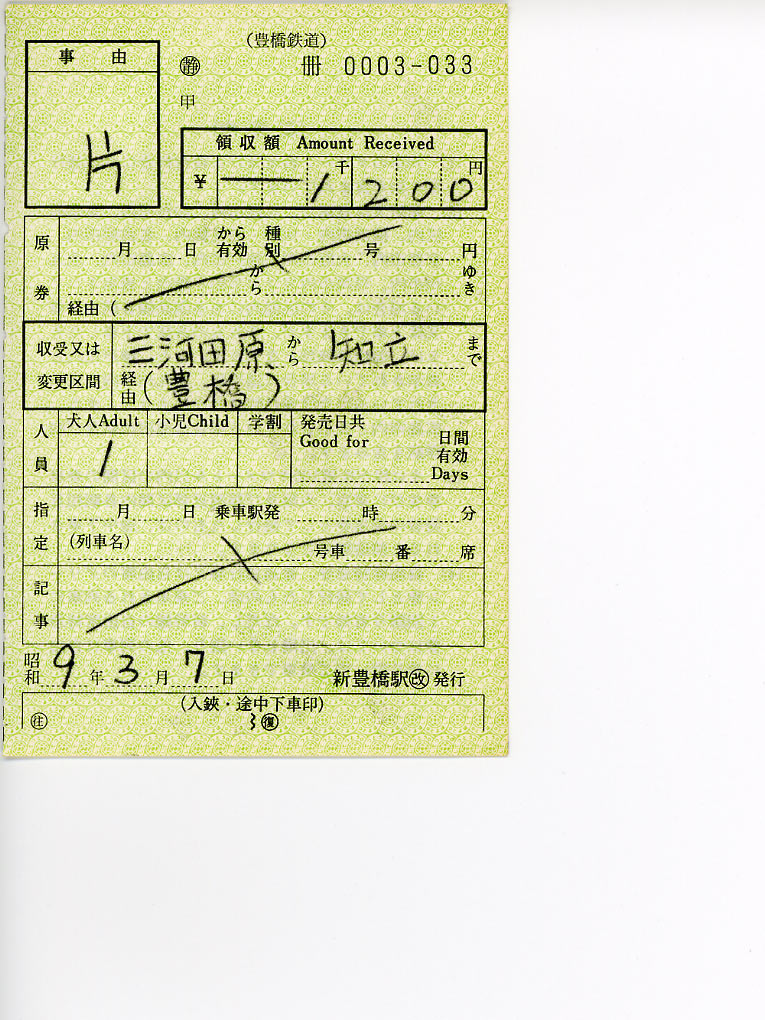 (豊橋鉄道)
事 由
㊞静 冊 0003-033
甲
片
領収額 Amount Received
千 円
¥ ー 1 2 0 0
原券
から 種
月 日 有効 別 号 円
から ゆき
経由 (
収受又は 三河田原 から 知立 まで
変更区間 経由 (豊橋)
人員
大人Adult 小児Child 学割 発売日共 日間
1 Good for 有効
Days
指定
月 日 乗車駅発 時 分
(列車名) 号車 番 席
記事
昭和 9 年 3 月 7 日 新豊橋駅㊞改 発行
(入鋏・途中下車印)